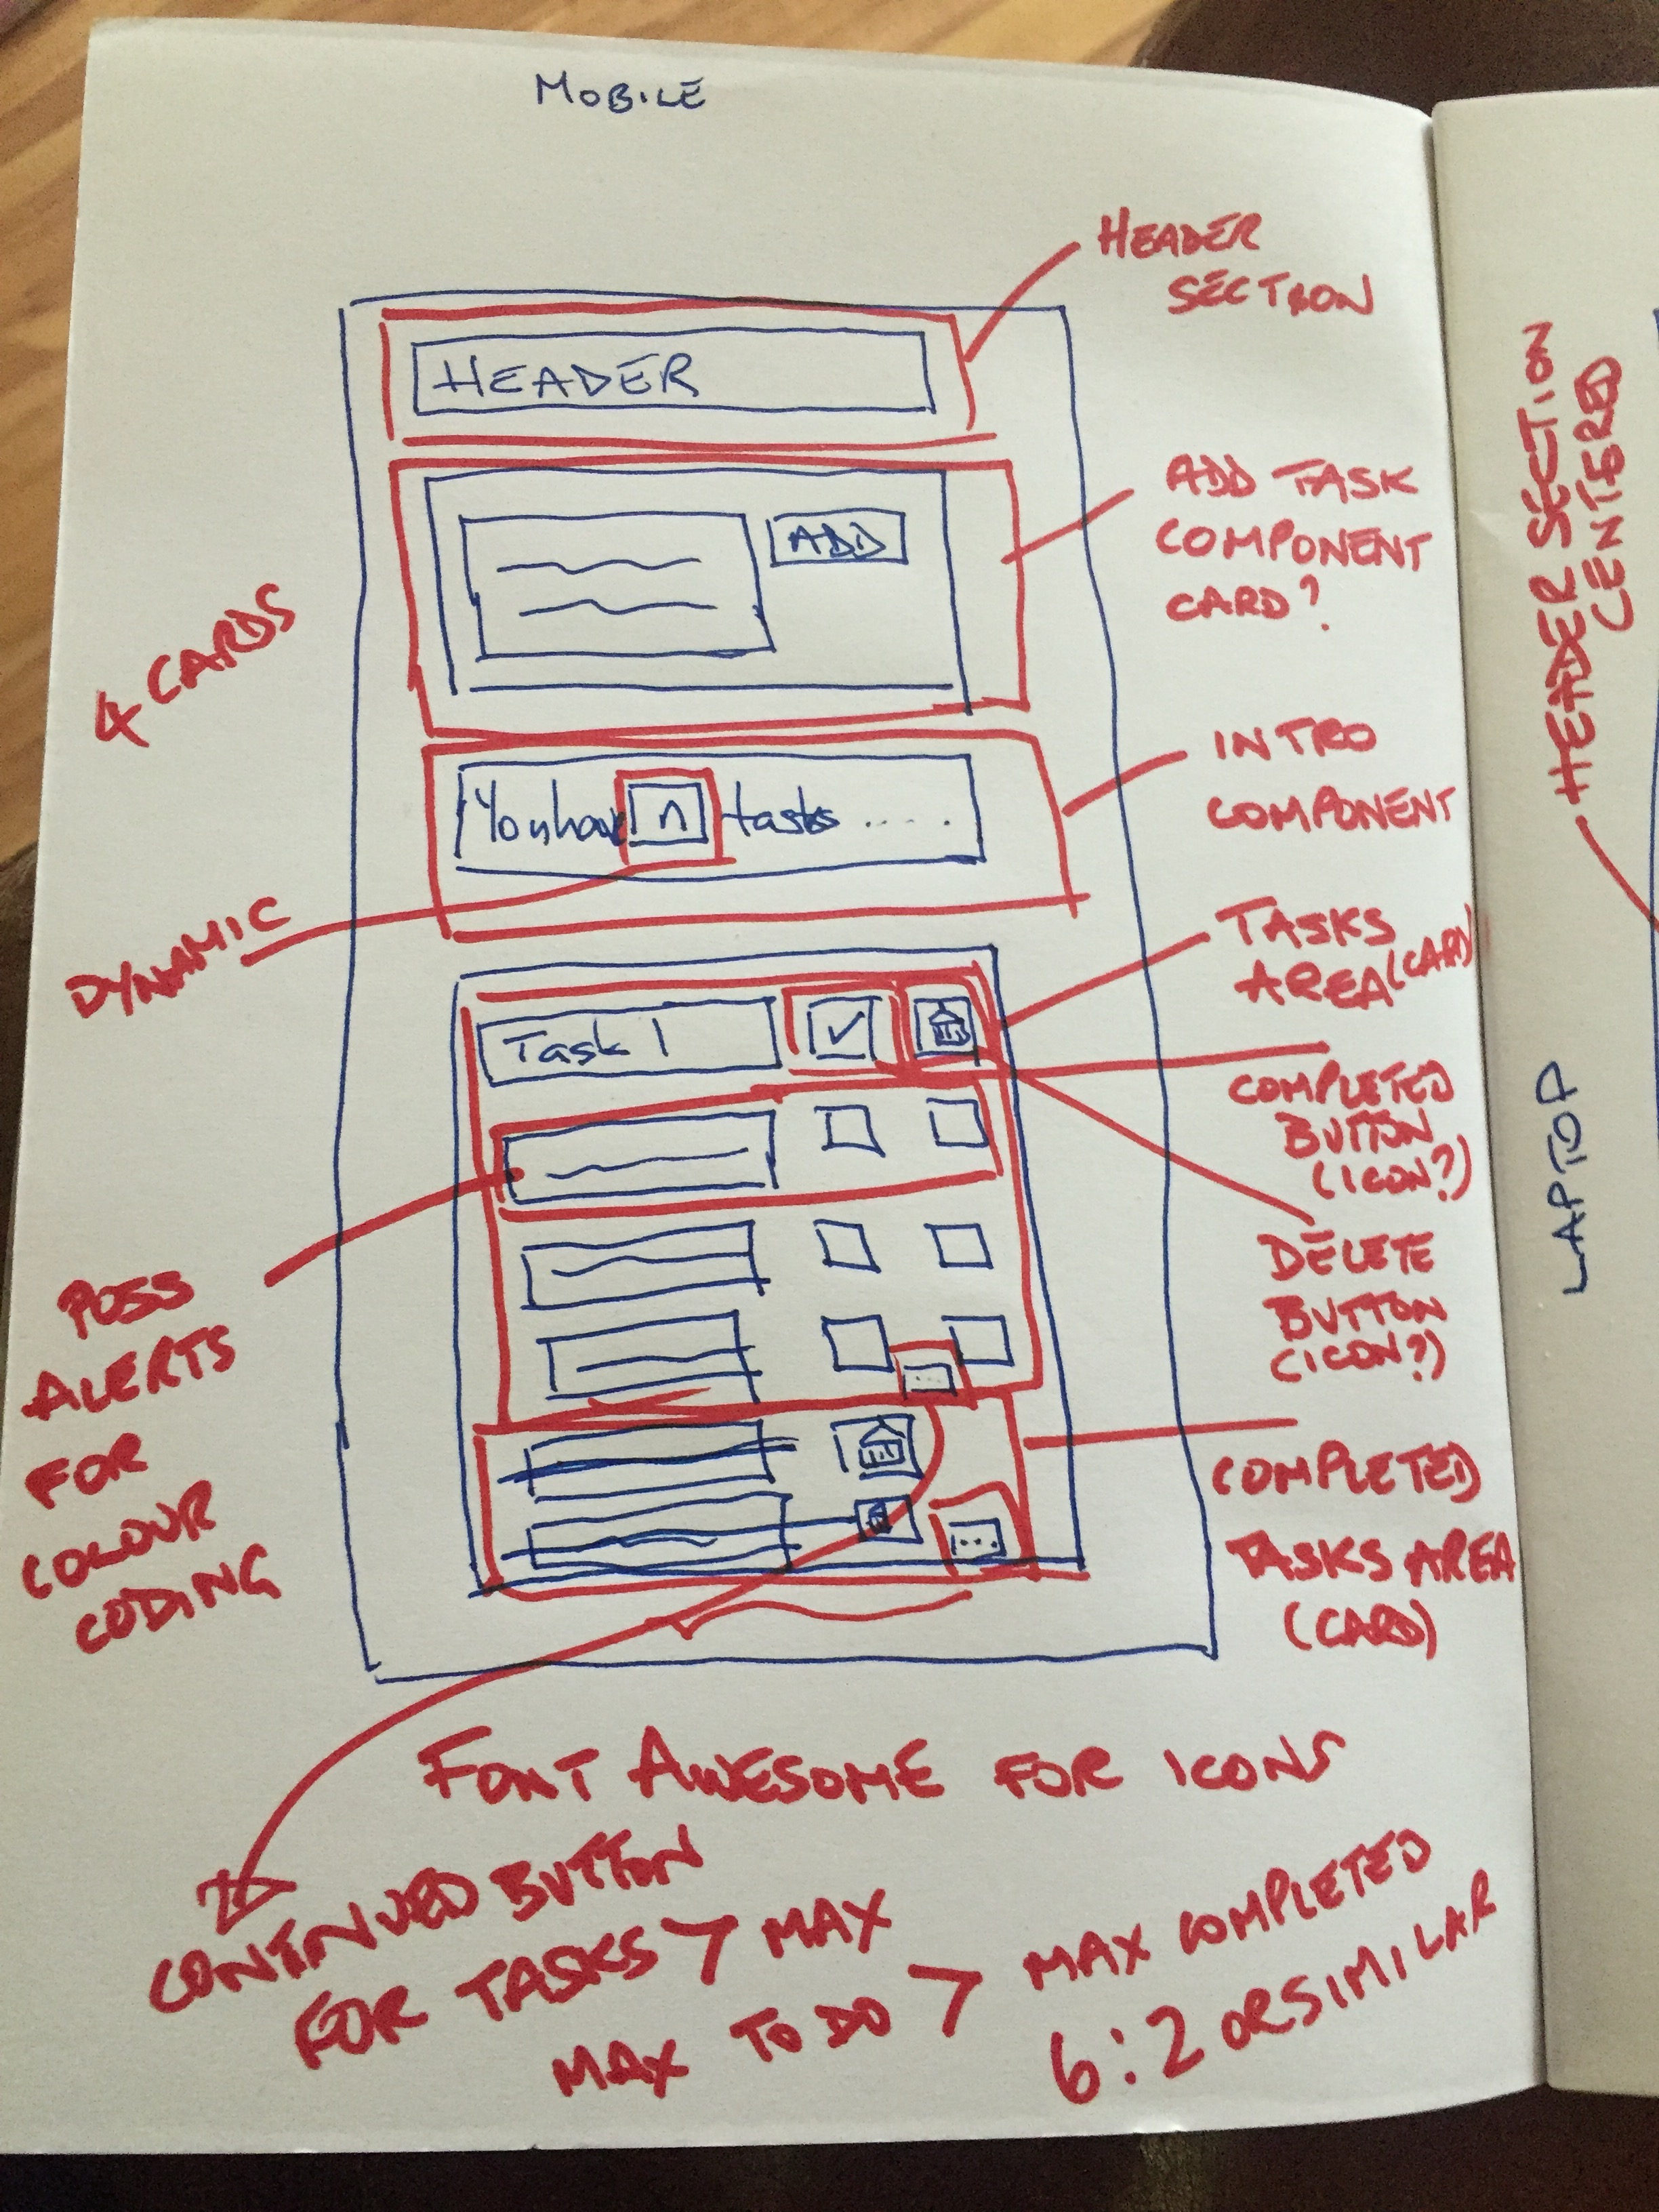 MOBILE
HEADER
SECTION
HEADER
ADD TASK
COMPONENT
CARD?
ADD
4 CARDS
INTRO
COMPONENT
You have n tasks ....
DYNAMIC
TASKS
AREA (CARD)
Task 1
COMPLETED
BUTTON
(ICON?)
DELETE
BUTTON
(ICON?)
POSS
ALERTS
FOR
COLOUR
CODING
...
COMPLETED
TASKS AREA
(CARD)
...
FONT AWESOME FOR ICONS
CONTINUED BUTTON
FOR TASKS > MAX
MAX TO DO > MAX COMPLETED
6:2 OR SIMILAR
HEADER SECTION
CENTERED
LAPTOP